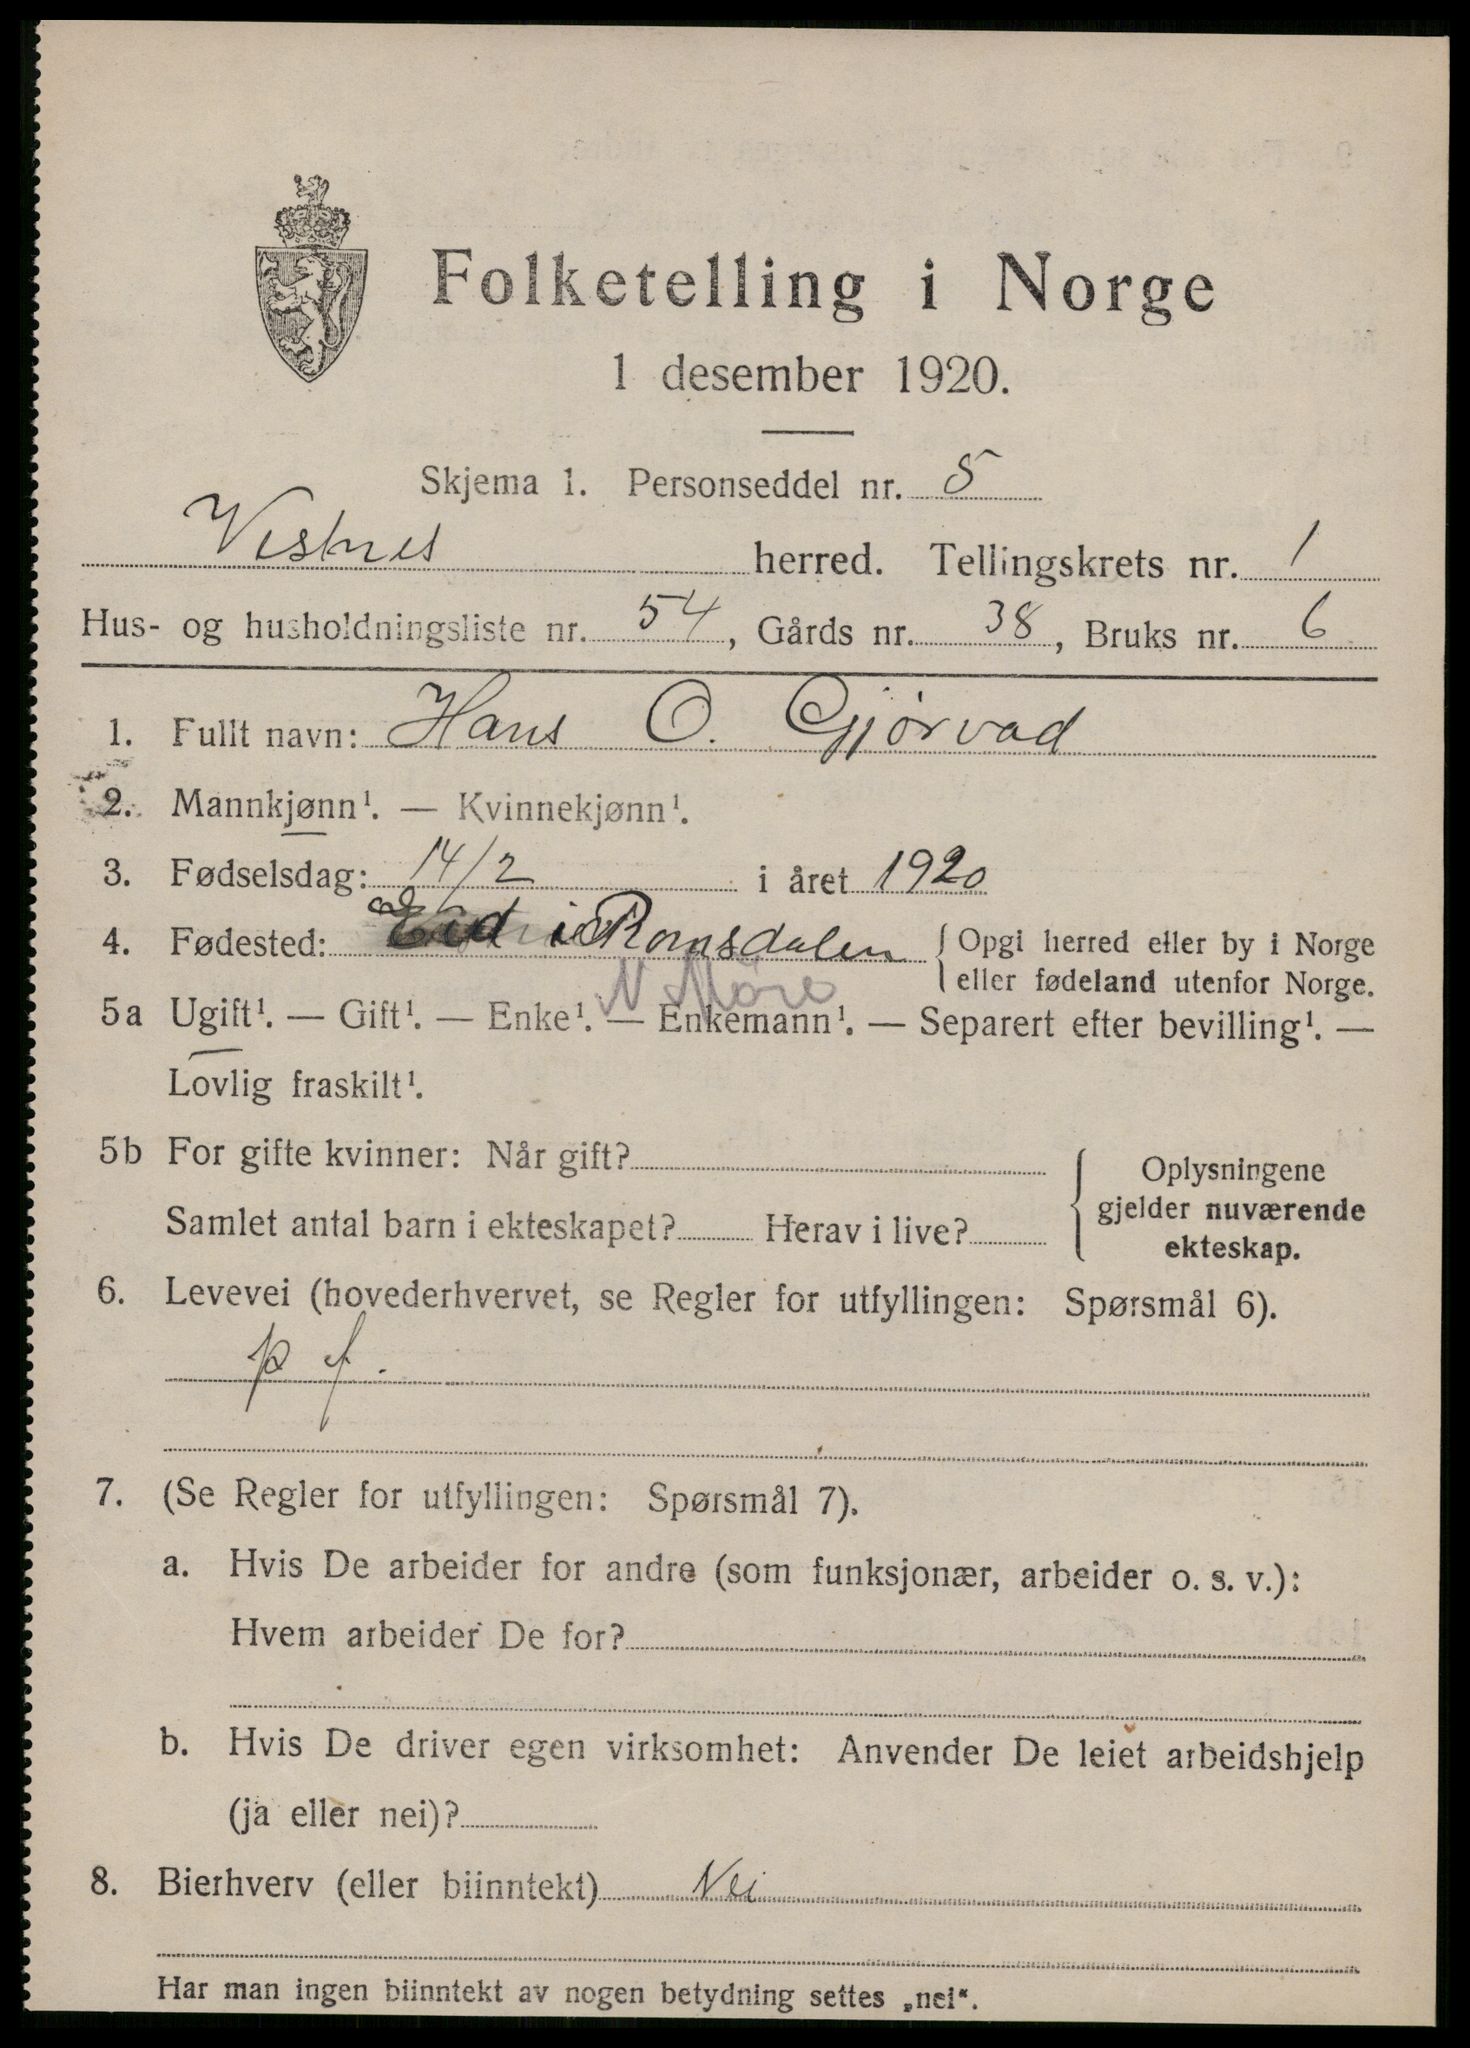 Folketelling i Norge
1 desember 1920.
Skjema 1. Personseddel nr. 5
Vestnes herred. Tellingskrets nr. 1
Hus- og husholdningsliste nr. 54, Gårds nr. 38, Bruks nr. 6
1. Fullt navn: Hans O. Gjørvad
2. Mannkjønn¹. — Kvinnekjønn¹.
3. Fødselsdag: 14/2 i året 1920
4. Fødested: Eid i Romsdalen { Opgi herred eller by i Norge
eller fødeland utenfor Norge.
N Møre
5a Ugift¹. — Gift¹. — Enke¹. — Enkemann¹. — Separert efter bevilling¹. —
Lovlig fraskilt¹.
5b For gifte kvinner: Når gift?
Samlet antal barn i ekteskapet? Herav i live?
{ Oplysningene
gjelder nuværende
ekteskap.
6. Levevei (hovederhvervet, se Regler for utfyllingen: Spørsmål 6).
p f.
7. (Se Regler for utfyllingen: Spørsmål 7).
a. Hvis De arbeider for andre (som funksjonær, arbeider o. s. v.):
Hvem arbeider De for?
b. Hvis De driver egen virksomhet: Anvender De leiet arbeidshjelp
(ja eller nei)?
8. Bierhverv (eller biinntekt) Nei
Har man ingen biinntekt av nogen betydning settes „nei“.